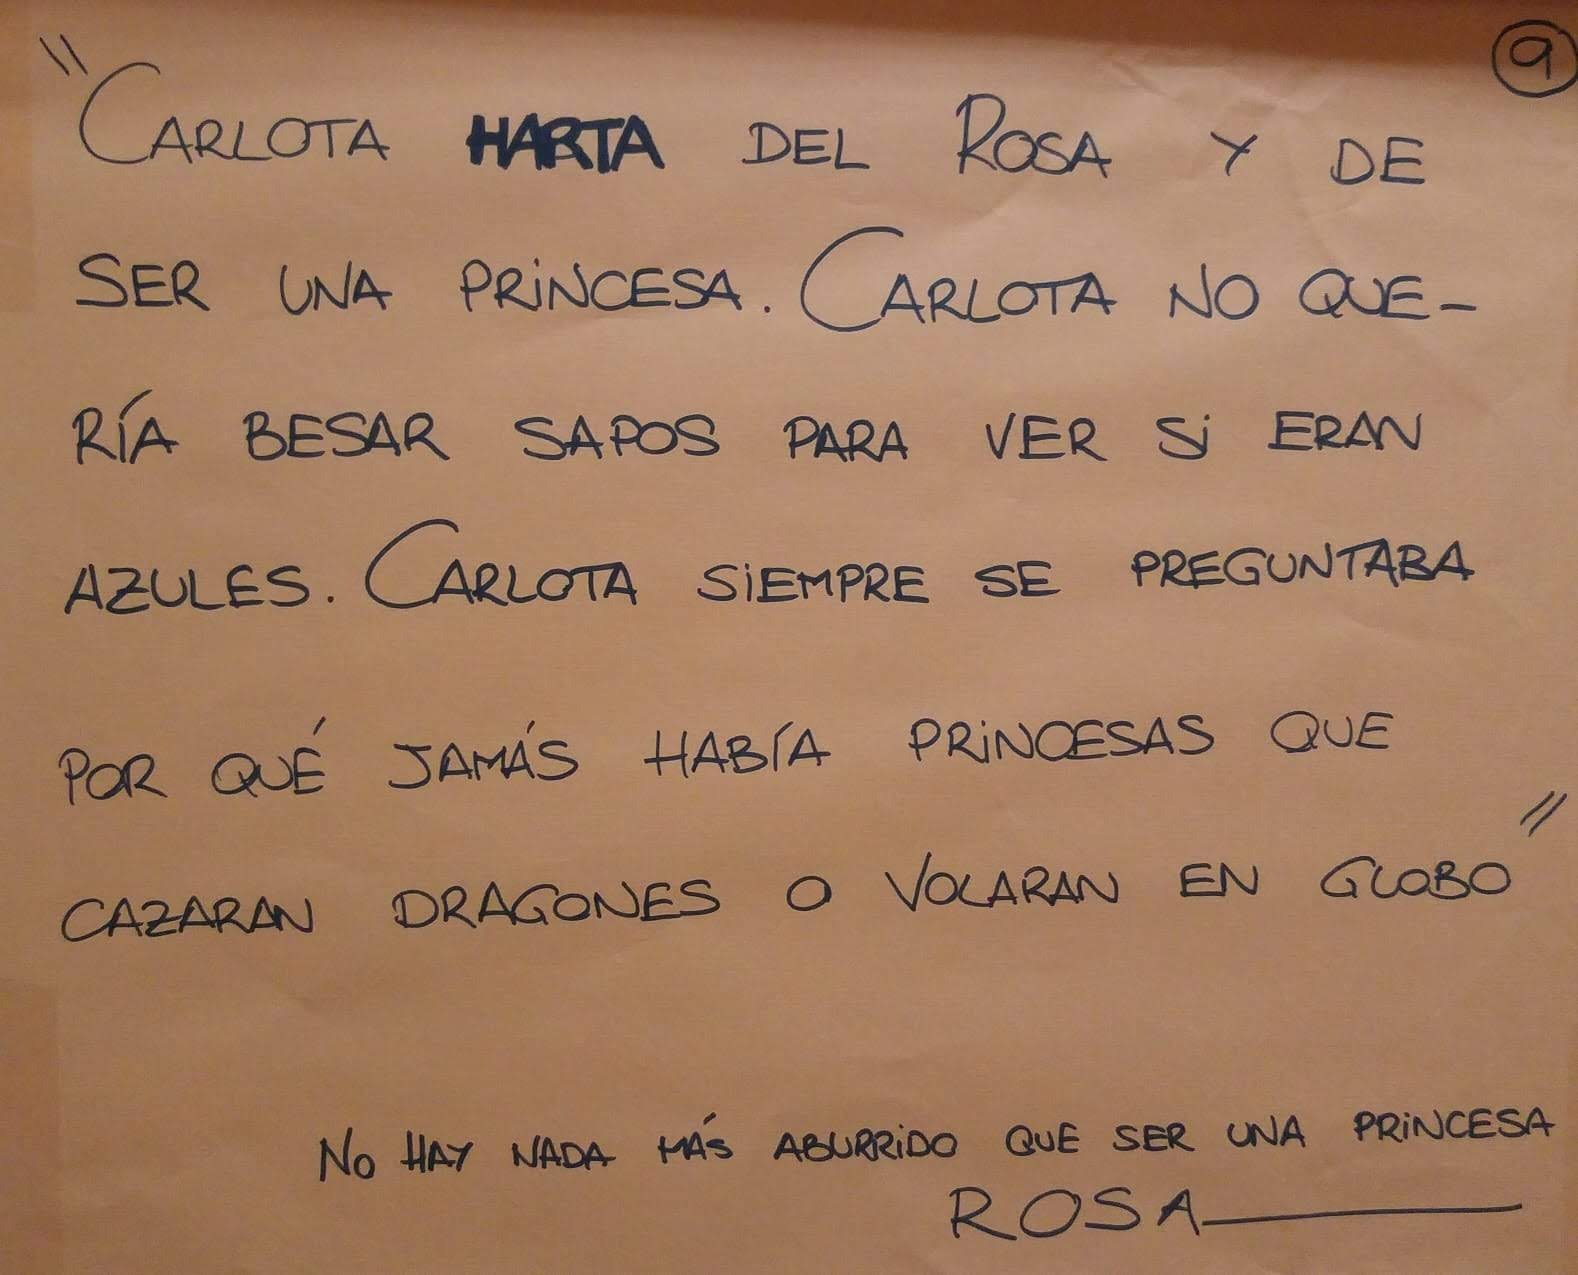 9
"CARLOTA HARTA DEL ROSA Y DE
SER UNA PRINCESA. CARLOTA NO QUE-
RÍA BESAR SAPOS PARA VER SI ERAN
AZULES. CARLOTA SIEMPRE SE PREGUNTABA
POR QUÉ JAMÁS HABÍA PRINCESAS QUE
CAZARAN DRAGONES O VOLARAN EN GLOBO"
NO HAY NADA MÁS ABURRIDO QUE SER UNA PRINCESA
ROSA